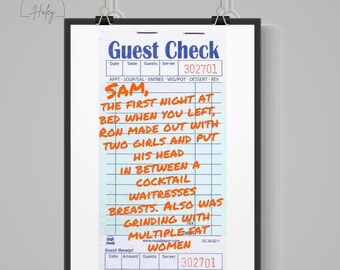 Huky
Guest Check
Date Table Guests Server
302701
APPT - SOUP/SAL - ENTREE - VEG/POT - DESSERT - BEV
SAM,
THE FIRST NIGHT AT
BED WHEN YOU LEFT,
RON MADE OUT WITH
TWO GIRLS AND PUT
HIS HEAD
IN BETWEEN A
COCKTAIL
WAITRESSES
BREASTS. ALSO WAS
GRINDING WITH
MULTIPLE FAT
WOMEN
Guest Receipt
Date Amount Guests Server
302701